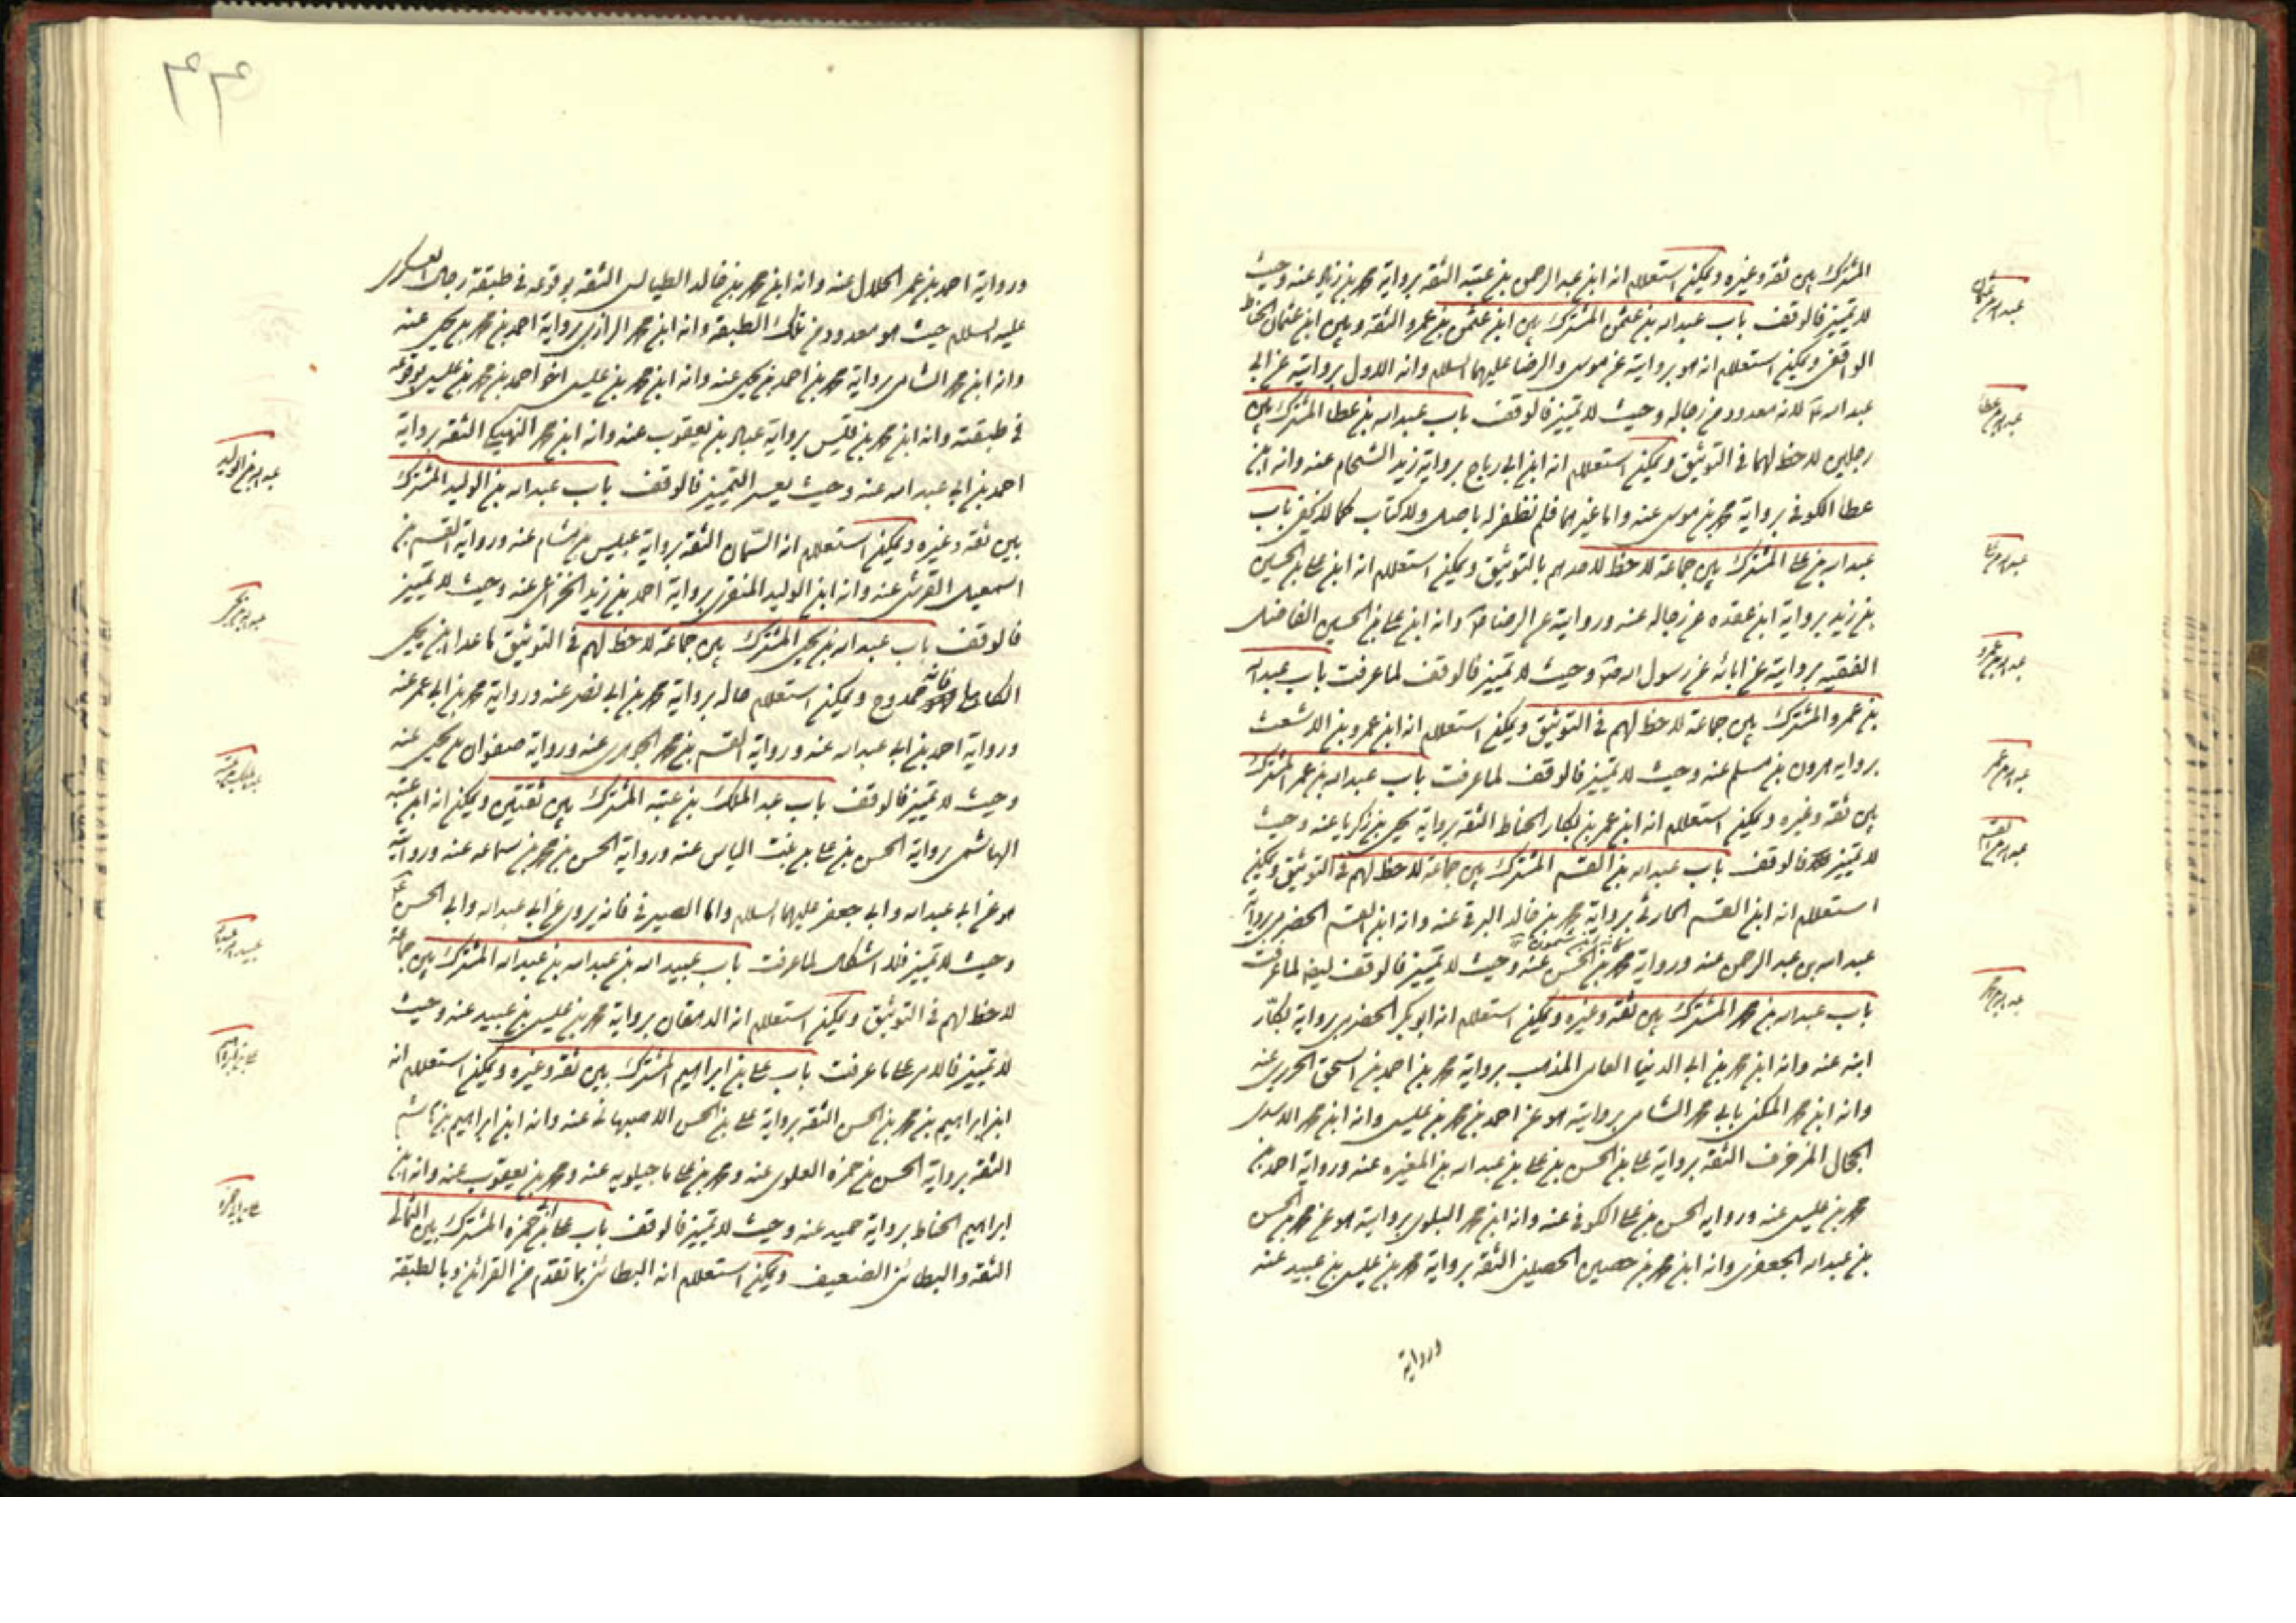 المشترك بين ثقة وغيره ويمكن استعلام انه ابن عبد الرحمن بن عتبة الثقة برواية محمد بن زياد عنه وحيث
لا تميز فالوقف باب عبد الله بن عثمن المشترك بين ابن عثمن بن عمرو الثقة وبين ابن عثمان الحناط
الواقفي ويمكن استعلام انه هو بروايته عن موسى والرضا عليهما السلام وانه الاول بروايته عن ابي
عبد الله ع لانه معدود من رجاله وحيث لا تميز فالوقف باب عبد الله بن عطا المشترك بين
رجلين لا حظ لهما في التوثيق ويمكن استعلام انه ابن ابي رباح برواية زيد الشحام عنه وانه ابن
عطا الكوفي برواية محمد بن موسى عنه واما غيرهما فلم نظفر له باصل ولا كتاب كما لا يخفى باب
عبد الله بن علي المشترك بين جماعة لا حظ لاحدهم بالتوثيق ويمكن استعلام انه ابن علي بن الحسين
بن زيد برواية ابن عقده عن رجاله عنه وروايته عن الرضا ع وانه ابن علي بن الحسين الفاضل
الفقيه بروايته عن ابائه عن رسول الله ص وحيث لا تميز فالوقف لما عرفت باب عبد الله
بن عمرو المشترك بين جماعة لا حظ لهم في التوثيق ويمكن استعلام انه ابن عمرو بن الاشعث
برواية هرون بن مسلم عنه وحيث لا تميز فالوقف لما عرفت باب عبد الله بن عمر المشترك
بين ثقة وغيره ويمكن استعلام انه ابن عمر بن بكار الحناط الثقة برواية يحيى بن زكريا عنه وحيث
لا تميز فالوقف باب عبد الله بن القسم المشترك بين جماعة لا حظ لهم في التوثيق ويمكن
استعلام انه ابن القسم الحارثي برواية محمد بن خالد البرقي عنه وانه ابن القسم الحضرمي برواية
عبد الله بن عبد الرحمن عنه ورواية محمد بن الحسن بن شمون عنه وحيث لا تميز فالوقف ايضا لما عرفت
باب عبد الله بن محمد المشترك بين ثقة وغيره ويمكن استعلام انه ابو بكر الحضرمي برواية بكار
ابنه عنه وانه ابن محمد بن ابي الدنيا العامي المذهب برواية محمد بن احمد بن اسحق الحريري عنه
وانه ابن محمد المكنى بابي محمد الشامي بروايته هو عن احمد بن محمد بن عيسى وانه ابن محمد الاسدي
الحجال المزخرف الثقة برواية علي بن الحسن بن علي بن عبد الله بن المغيرة عنه ورواية احمد بن
محمد بن عيسى عنه ورواية الحسن بن علي الكوفي عنه وانه ابن محمد البلوي بروايته هو عن محمد بن الحسن
بن عبد الله الجعفري وانه ابن محمد بن حصين الحصيني الثقة برواية محمد بن عيسى بن عبيد عنه
ورواية
عبد الله بن عثمان
عبد الله بن عطا
عبد الله بن علي
عبد الله بن عمرو
عبد الله بن عمر
عبد الله بن القسم
عبد الله بن محمد
٤٣
ورواية احمد بن عمر الحلال عنه وانه ابن محمد بن خالد الطيالسي الثقة بوقوعه في طبقة رجال العسكري
عليه السلام حيث هو معدود من تلك الطبقة وانه ابن محمد الرازي برواية احمد بن محمد بن يحيى عنه
وانه ابن محمد الشامي برواية محمد بن احمد بن يحيى عنه وانه ابن محمد بن عيسى اخو احمد بن محمد بن عيسى بوقوعه
في طبقته وانه ابن محمد بن قيس برواية عباد بن يعقوب عنه وانه ابن محمد النهيكي الثقة برواية
احمد بن ابي عبد الله عنه وحيث يعسر التميز فالوقف باب عبد الله بن الوليد المشترك
بين ثقة وغيره ويمكن استعلام انه السمان الثقة برواية عبيس بن هشام عنه ورواية القسم بن
اسمعيل القرشي عنه وانه ابن الوليد المنقري برواية احمد بن زيد الخزاعي عنه وحيث لا تميز
فالوقف باب عبد الله بن يحيى المشترك بين جماعة لا حظ لهم في التوثيق ما عدا ابن يحيى
الكاهلي فانه ممدوح ويمكن استعلام حاله برواية محمد بن ابي نصر عنه ورواية محمد بن ابي عمر عنه
ورواية احمد بن ابي عبد الله عنه ورواية القسم بن محمد الجوهري عنه ورواية صفوان بن يحيى عنه
وحيث لا تميز فالوقف باب عبد الملك بن عتبة المشترك بين ثقتين ويمكن انه ابن عتبة
الهاشمي برواية الحسن بن علي بن بنت الياس عنه ورواية الحسن بن محمد بن سماعه عنه وروايته
هو عن ابي عبد الله وابي جعفر عليهما السلام واما الصيرفي فانه يروي عن ابي عبد الله وابي الحسن ع
وحيث لا تميز فلا اشكال لما عرفت باب عبيد الله بن عبد الله بن عبد الله المشترك بين جماعة
لا حظ لهم في التوثيق ويمكن استعلام انه الدهقان برواية محمد بن عيسى بن عبيد عنه وحيث
لا تميز فالامر على ما عرفت باب علي بن ابراهيم المشترك بين ثقة وغيره ويمكن استعلام انه
ابن ابراهيم بن محمد بن الحسن الثقة برواية علي بن الحسن الاصبهاني عنه وانه ابن ابراهيم بن هاشم
الثقة برواية الحسن بن حمزة العلوي عنه ومحمد بن علي ماجيلويه عنه ومحمد بن يعقوب عنه وانه ابن
ابراهيم الخياط برواية حميد عنه وحيث لا تميز فالوقف باب علي بن ابي حمزة المشترك بين الثمالي
الثقة والبطائني الضعيف ويمكن استعلام انه البطائني بما تقدم من القرائن وبالطبقة
عبد الله بن الوليد
عبد الله بن يحيى
عبد الملك بن عتبة
عبيد الله بن عبد الله
علي بن ابراهيم
علي بن ابي حمزة